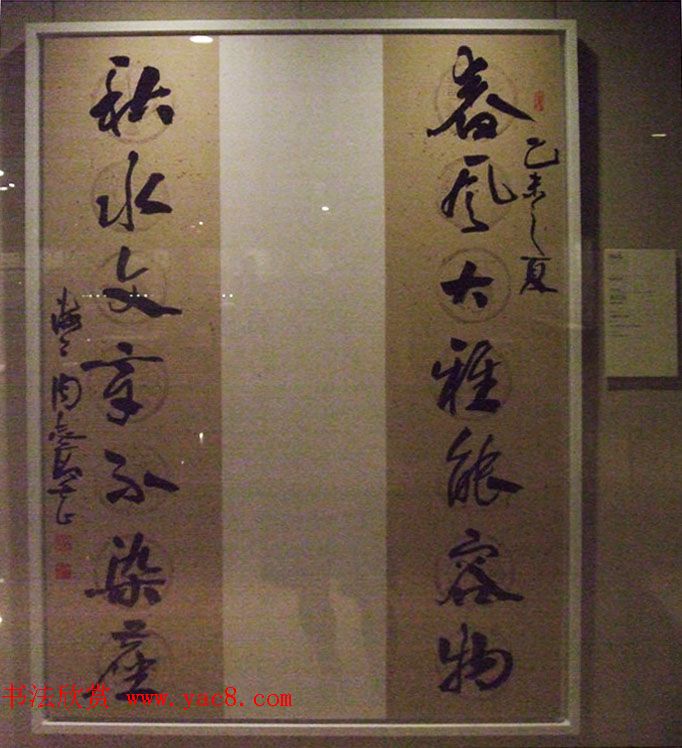 春风大雅能容物
乙未之夏
秋水文章不染尘
书法欣赏 www.yac8.com